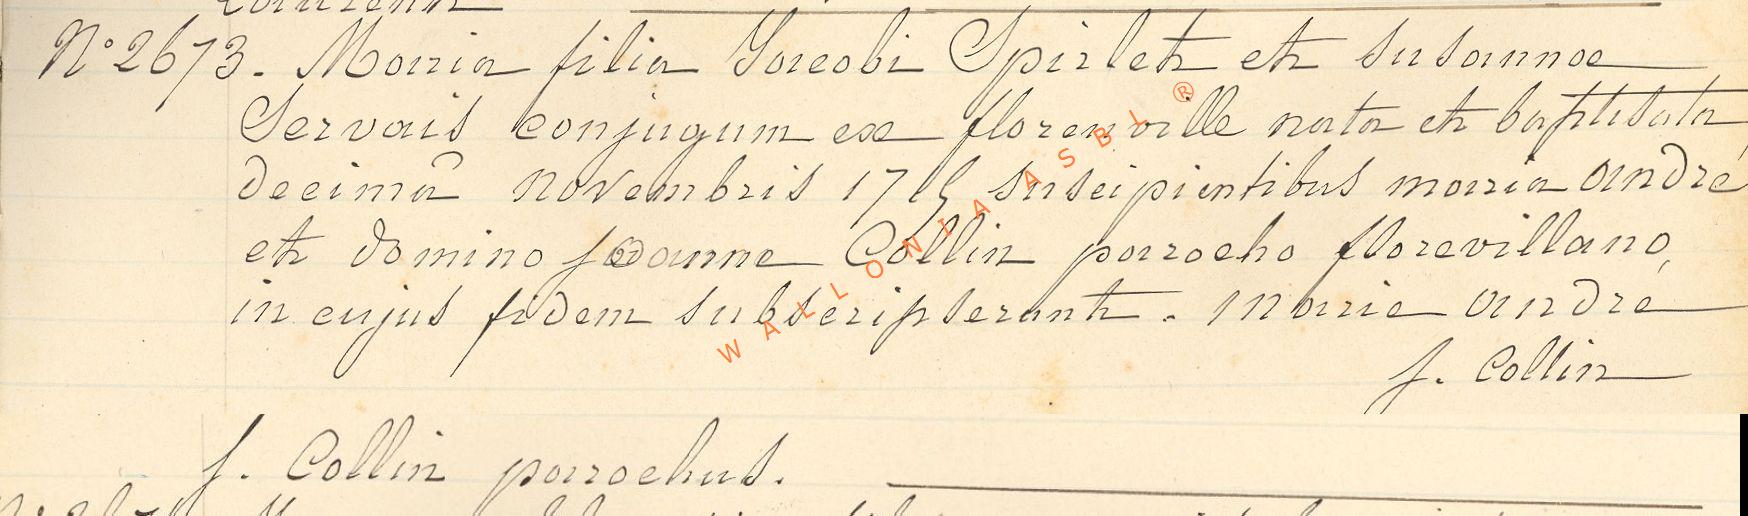 N° 2673. Maria filia Jacobi Spirlet et susannae
Servais conjugum ex florenville nata et baptisata
decima novembris 1715 suscipientibus maria andré
et domino joanne Collin parrocho florevillano,
in cujus fidem subscripserunt. Marie andre
j. Collin
j. Collin parrochus.
WALLONIA ASBL ®